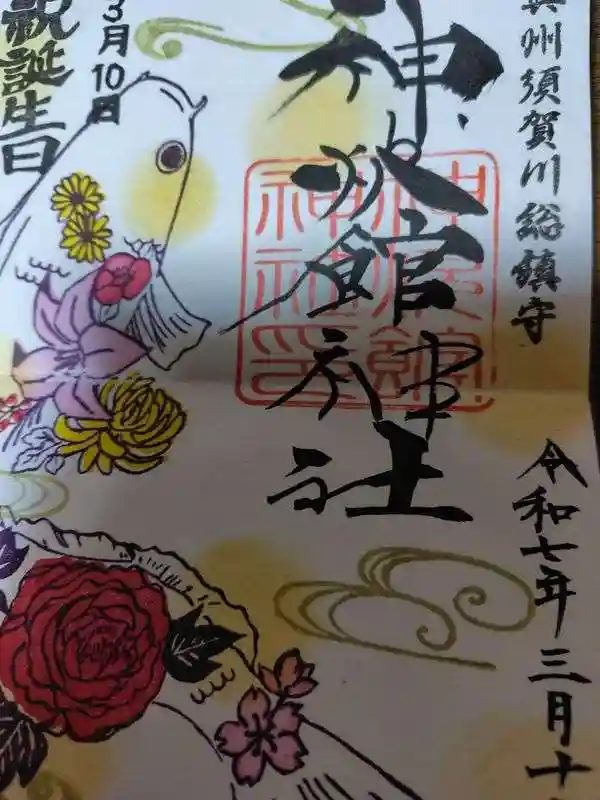 奥州須賀川総鎮守
令和七年三月十
神炊館神社
神炊館
神社印
3月10日
祝誕生日